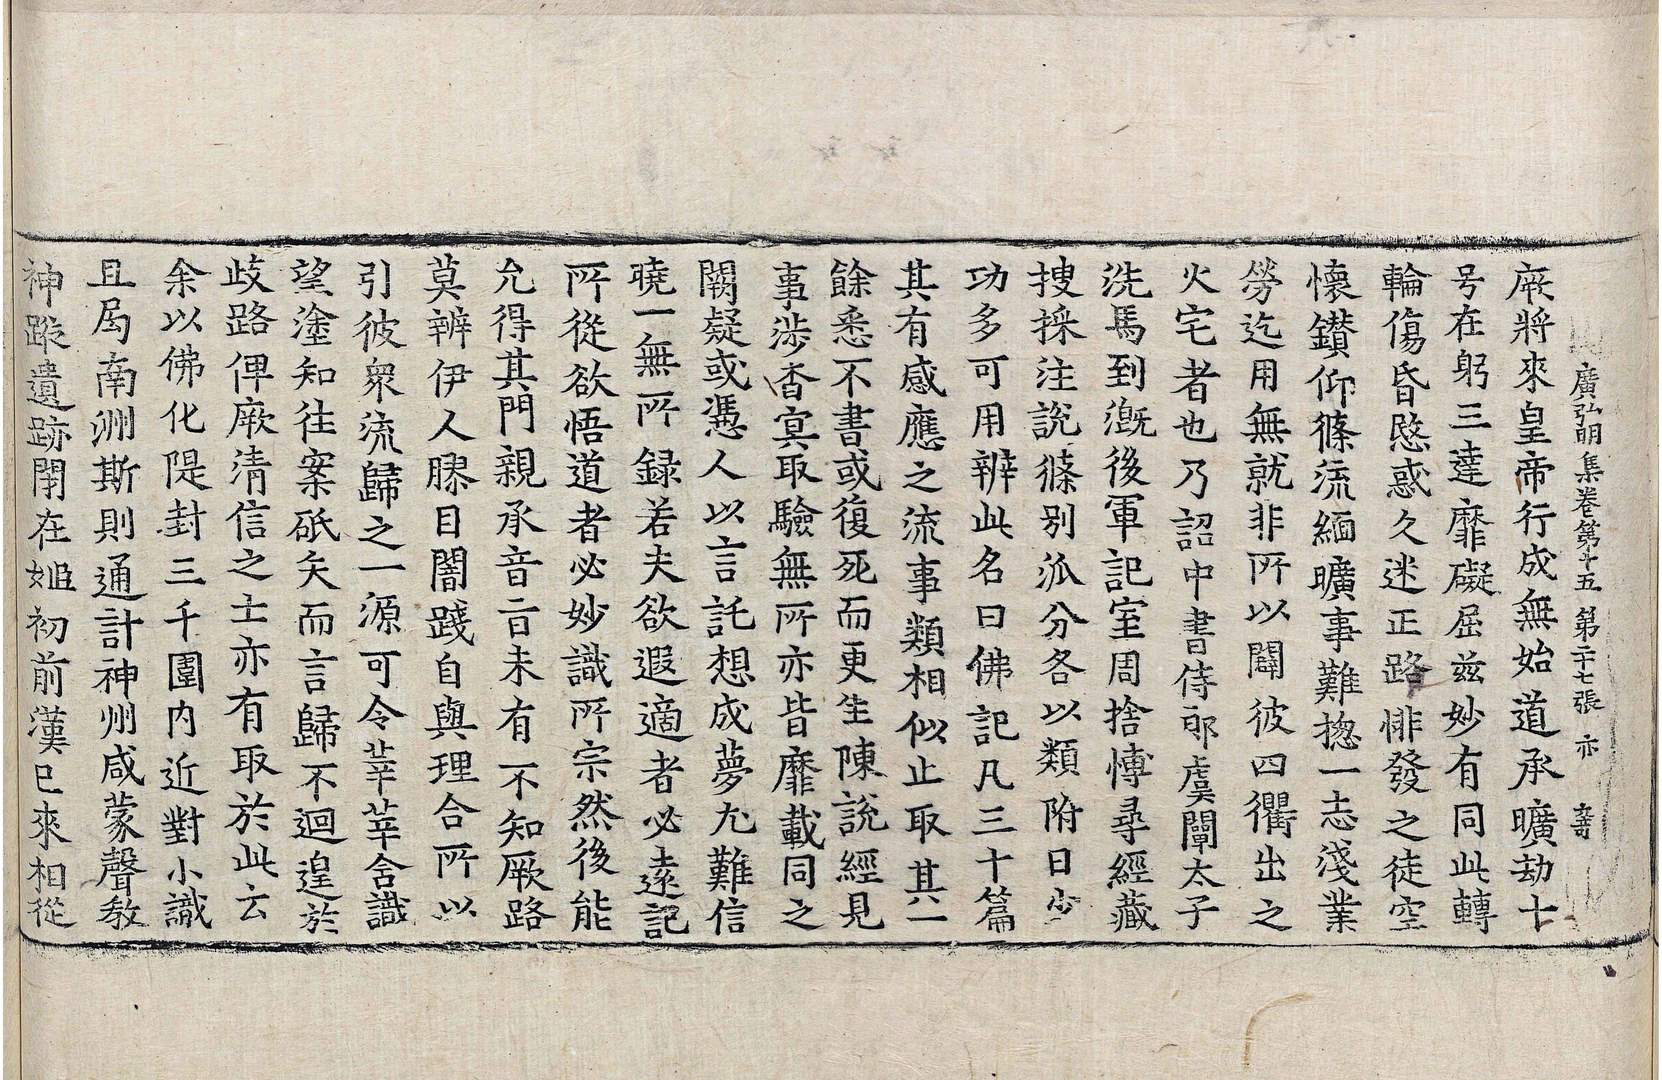 廣弘明集卷第十五 第二十七張 亦
厥將來皇帝行成無始道承曠劫十
号在躬三達靡礙屈兹妙有同此轉
輪傷昏愍惑久迷正路悱發之徒空
懷鑚仰條流緬曠事難揔一志淺業
勞迄用無就非所以闢彼四衢出之
火宅者也乃詔中書侍郎虞闡太子
洗馬到溉後軍記室周捨博尋經藏
搜採注說條别泒分各以類附日少
功多可用辨此名曰佛記凡三十篇
其有感應之流事類相似止取其一
餘悉不書或復死而更生陳說經見
事涉杳冥取驗無所亦皆靡載同之
闕疑或憑人以言託想成夢尤難信
曉一無所録若夫欲遐適者必遠記
所從欲悟道者必妙識所宗然後能
允得其門親承音旨未有不知厥路
莫辨伊人膠目闇踐自與理合所以
引彼衆流歸之一源可令莘莘含識
望塗知往案砥矢而言歸不迴遑於
歧路俾厥清信之士亦有取於此云
余以佛化隄封三千圍内近對小識
且局南洲斯則通計神州咸蒙聲教
神蹤遺跡閈在姬初前漢已來相從